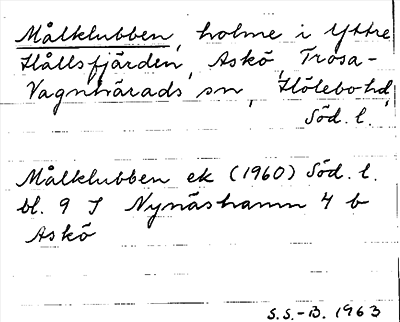 Målklubben, holme i Yttre
Hållsfjärden, Askö, Trosa-
Vagnhärads sn, Hölebohd,
Söd. l.
Målklubben ek (1960) Söd. l.
bl. 9 J Nynäshamn 4 b
Askö
S.S.-B. 1963